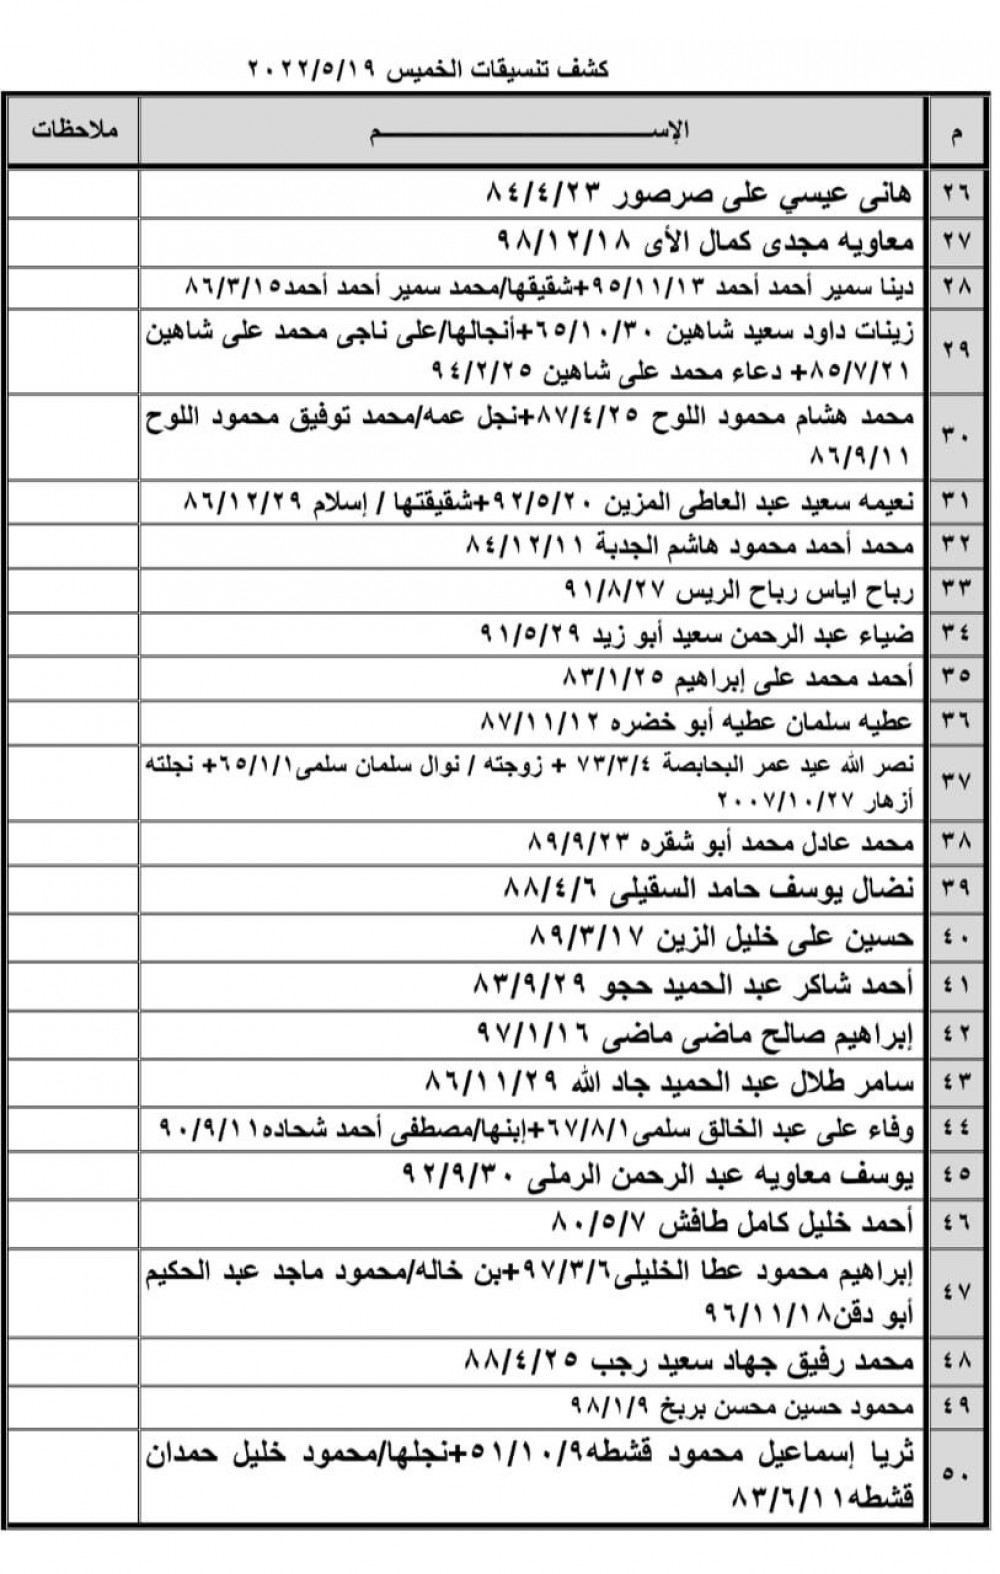 كشف تنسيقات الخميس ٢٠٢٢/٥/١٩
م الإســـــــــــــــــــــــــم ملاحظات
٢٦ هانى عيسي على صرصور ٨٤/٤/٢٣
٢٧ معاويه مجدى كمال الأى ٩٨/١٢/١٨
٢٨ دينا سمير أحمد أحمد ٩٥/١١/١٣+شقيقها/محمد سمير أحمد أحمد٨٦/٣/١٥
٢٩ زينات داود سعيد شاهين ٦٥/١٠/٣٠+أنجالها/على ناجى محمد على شاهين
٨٥/٧/٢١+ دعاء محمد على شاهين ٩٤/٢/٢٥
٣٠ محمد هشام محمود اللوح ٨٧/٤/٢٥+نجل عمه/محمد توفيق محمود اللوح
٨٦/٩/١١
٣١ نعيمه سعيد عبد العاطى المزين ٩٢/٥/٢٠+شقيقتها / إسلام ٨٦/١٢/٢٩
٣٢ محمد أحمد محمود هاشم الجدبة ٨٤/١٢/١١
٣٣ رباح اياس رباح الريس ٩١/٨/٢٧
٣٤ ضياء عبد الرحمن سعيد أبو زيد ٩١/٥/٢٩
٣٥ أحمد محمد على إبراهيم ٨٣/١/٢٥
٣٦ عطيه سلمان عطيه أبو خضره ٨٧/١١/١٢
٣٧ نصر الله عيد عمر البحابصة ٧٣/٣/٤ + زوجته / نوال سلمان سلمى٦٥/١/١+ نجلته
أزهار ٢٠٠٧/١٠/٢٧
٣٨ محمد عادل محمد أبو شقره ٨٩/٩/٢٣
٣٩ نضال يوسف حامد السقيلى ٨٨/٤/٦
٤٠ حسين على خليل الزين ٨٩/٣/١٧
٤١ أحمد شاكر عبد الحميد حجو ٨٣/٩/٢٩
٤٢ إبراهيم صالح ماضى ماضى ٩٧/١/١٦
٤٣ سامر طلال عبد الحميد جاد الله ٨٦/١١/٢٩
٤٤ وفاء على عبد الخالق سلمى٦٧/٨/١+إبنها/مصطفى أحمد شحاده٩٠/٩/١١
٤٥ يوسف معاويه عبد الرحمن الرملى ٩٢/٩/٣٠
٤٦ أحمد خليل كامل طافش ٨٠/٥/٧
٤٧ إبراهيم محمود عطا الخليلى٩٧/٣/٦+بن خاله/محمود ماجد عبد الحكيم
أبو دقن٩٦/١١/١٨
٤٨ محمد رفيق جهاد سعيد رجب ٨٨/٤/٢٥
٤٩ محمود حسين محسن بربخ ٩٨/١/٩
٥٠ ثريا إسماعيل محمود قشطه٥١/١٠/٩+نجلها/محمود خليل حمدان
قشطه٨٣/٦/١١